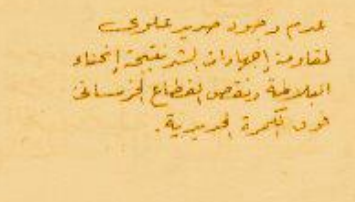 عدم وجود حديد علوى
لمقاومة إجهادات الشد نتيجة إنحناء
البلاطة ونقص القطاع الخرسانى
فوق الكمرة الحديدية.